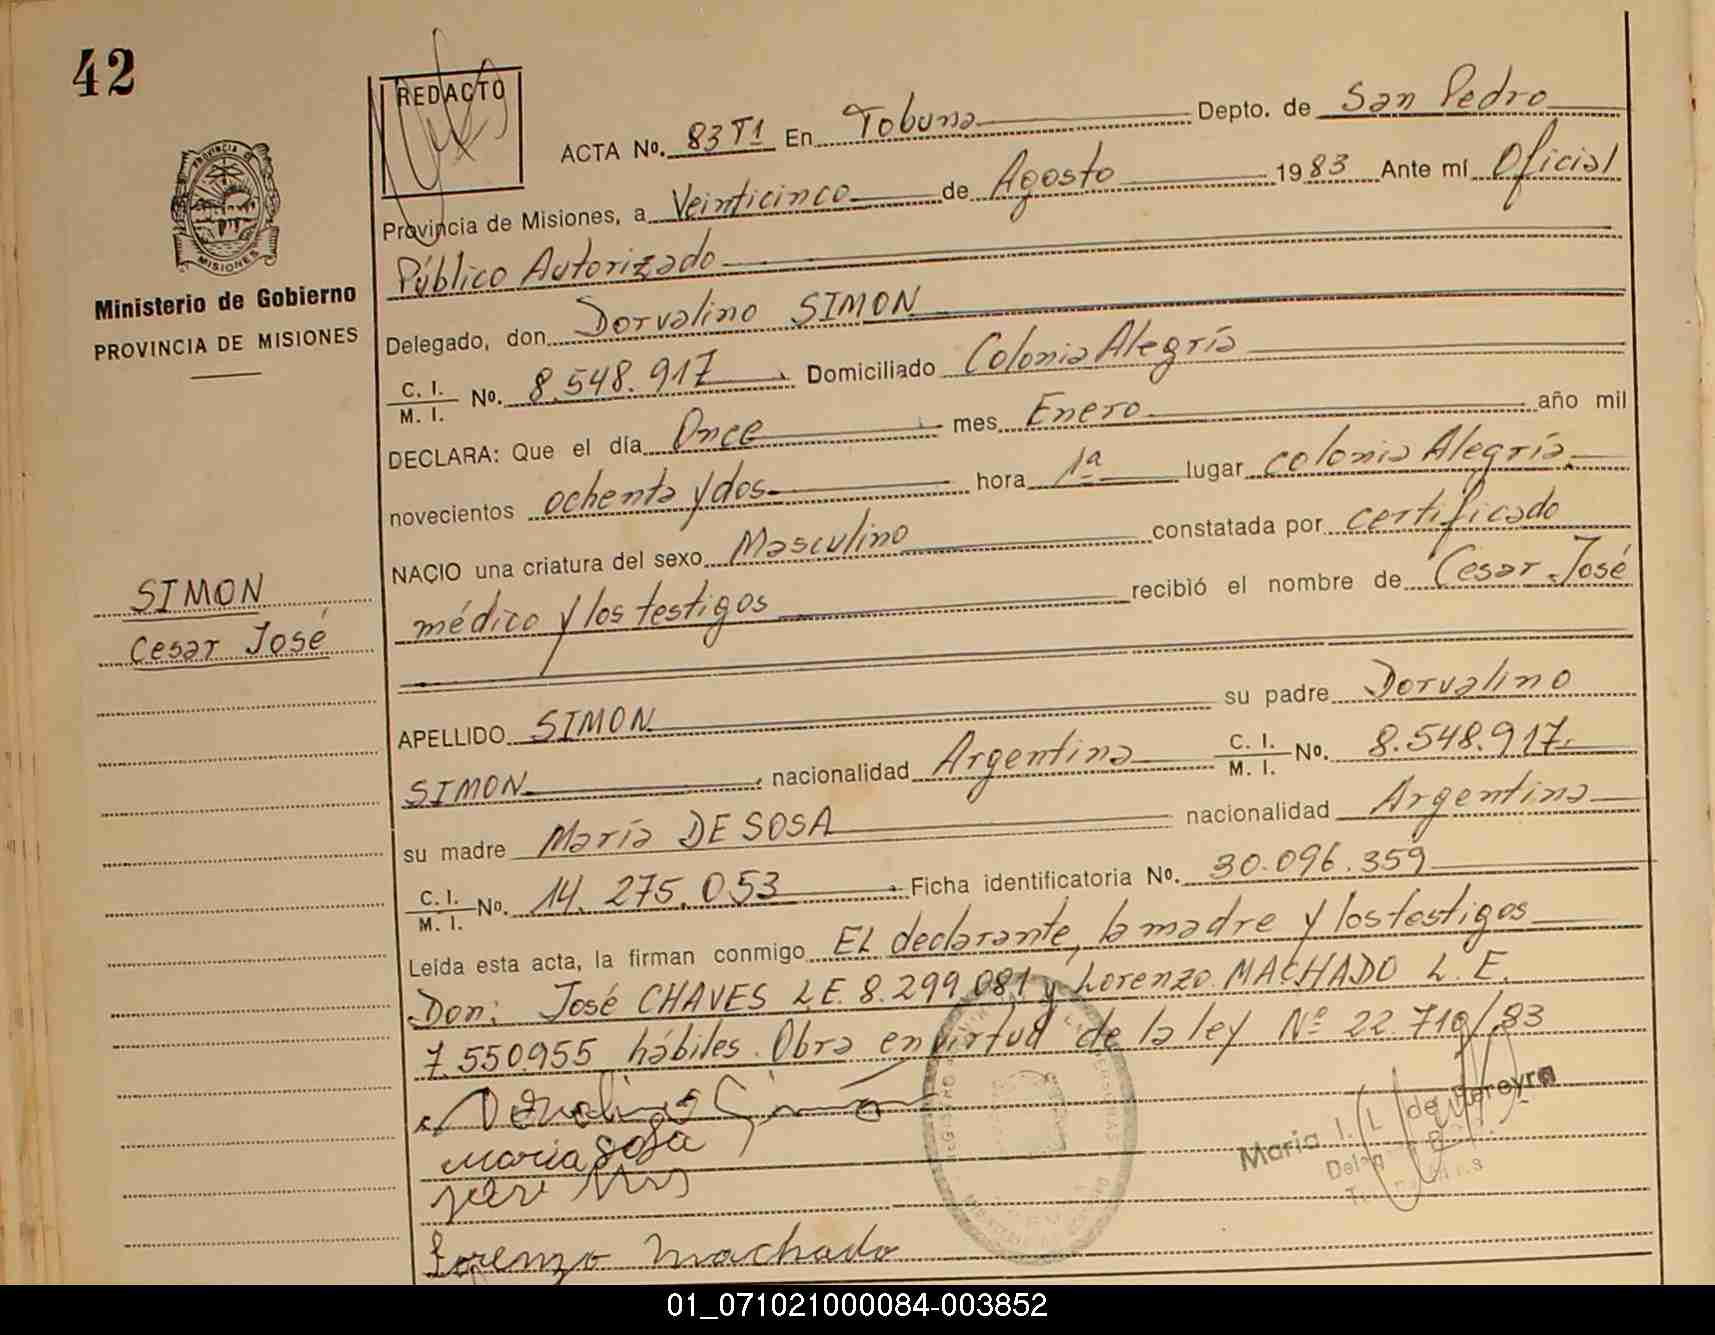 42
REDACTO
ACTA No. 83 T1 En Tobuna Depto. de San Pedro
Provincia de Misiones, a Veinticinco de Agosto 1983 Ante mí Oficial
Público Autorizado
Delegado, don Dorvalino SIMON
C. I. / M. I. No. 8.548.917 Domiciliado Colonia Alegría
DECLARA: Que el día Once mes Enero año mil
novecientos ochenta y dos hora 1ª lugar colonia Alegría
NACIO una criatura del sexo Masculino constatada por certificado
médico y los testigos recibió el nombre de Cesar José
APELLIDO SIMON su padre Dorvalino
SIMON, nacionalidad Argentina C. I. / M. I. No. 8.548.917.
su madre María DE SOSA nacionalidad Argentina
C. I. / M. I. No. 14.275.053 Ficha identificatoria No. 30.096.359
Leída esta acta, la firman conmigo EL declarante, la madre y los testigos
Don: José CHAVES L.E. 8.299.081 y Lorenzo MACHADO L.E.
7.550955 hábiles. Obra en virtud de la ley Nº 22.710/83
maria sosa
Lorenzo machado
Maria I. L. de Pereyra
PROVINCIA DE
MISIONES
Ministerio de Gobierno
PROVINCIA DE MISIONES
SIMON
Cesar José
01_071021000084-003852